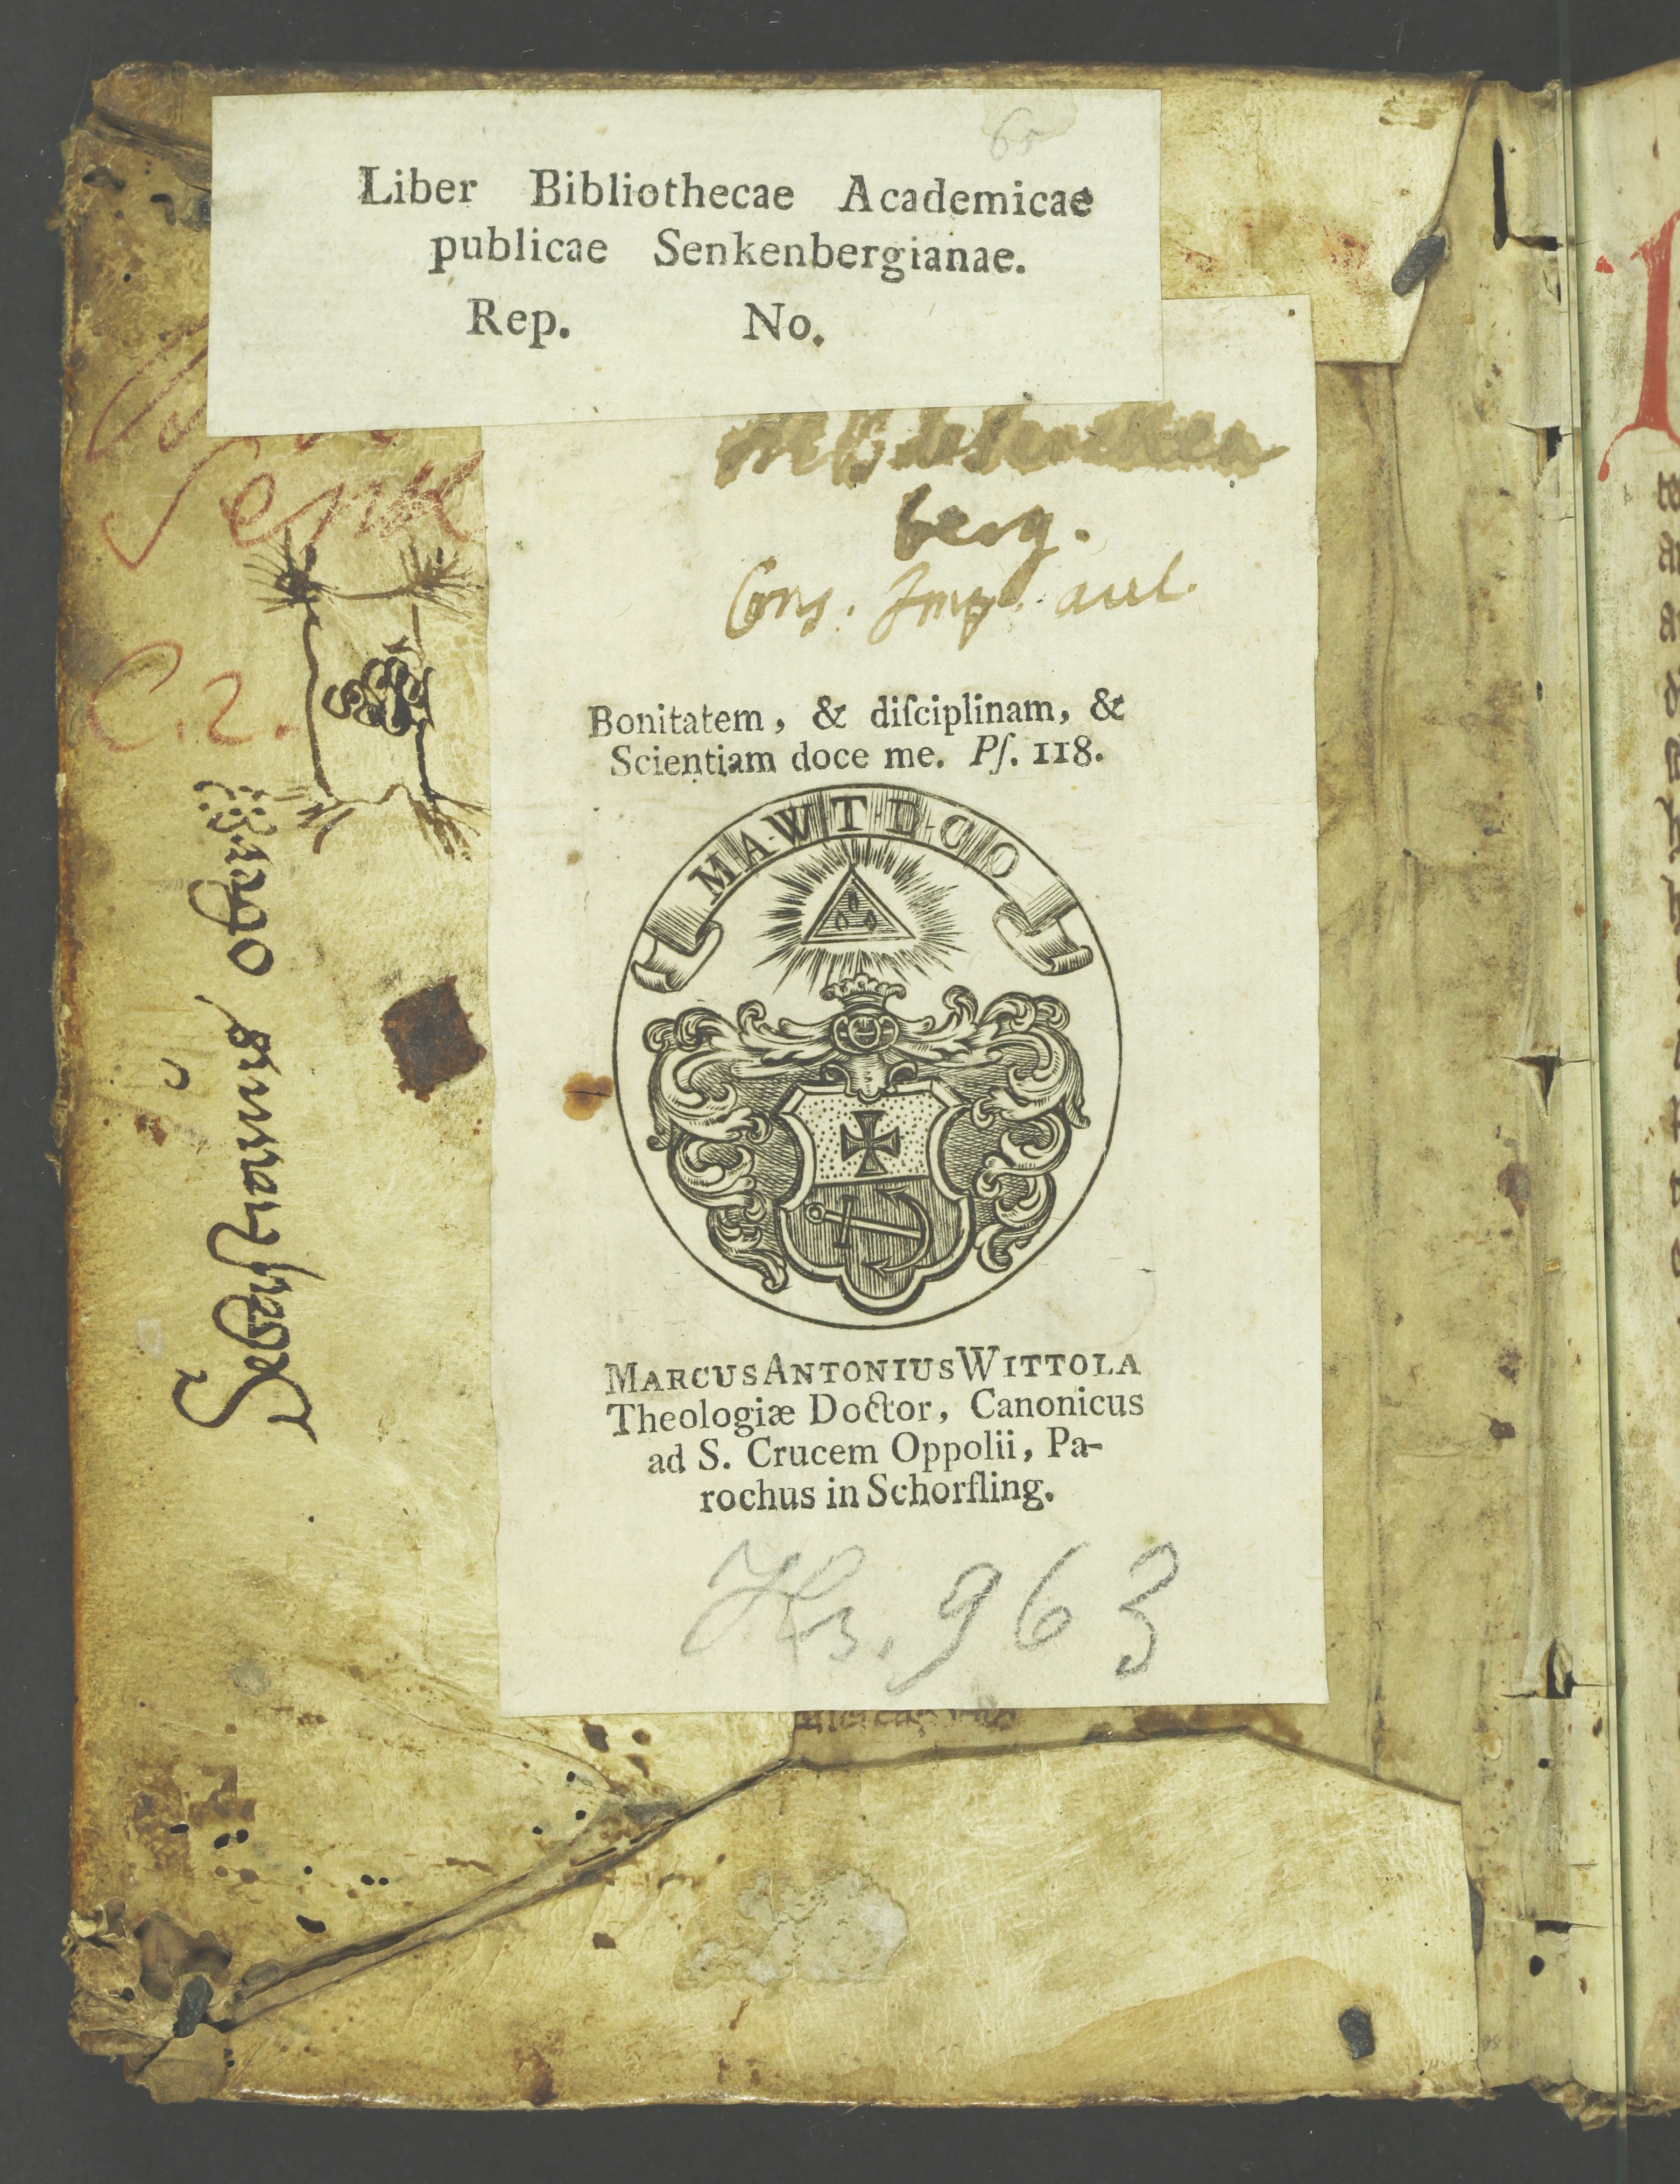 Liber Bibliothecae Academicae
publicae Senkenbergianae.
Rep. No.
Senk
C. 2.
berg.
Cons. Imp. aul.
Bonitatem, & diſciplinam, &
Scientiam doce me. Pſ. 118.
M·A·W·T·D·C·O
MARCUS ANTONIUS WITTOLA
Theologiæ Doctor, Canonicus
ad S. Crucem Oppolii, Pa-
rochus in Schorfling.
Hs. 963
Sebastianus